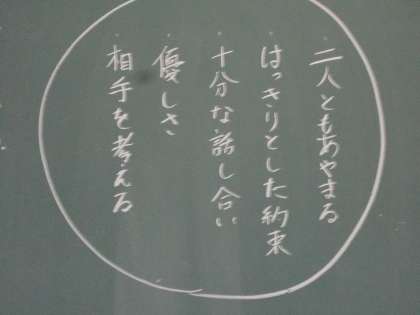 ・二人ともあやまる
・はっきりとした約束
・十分な話し合い
・優しさ
・相手を考える